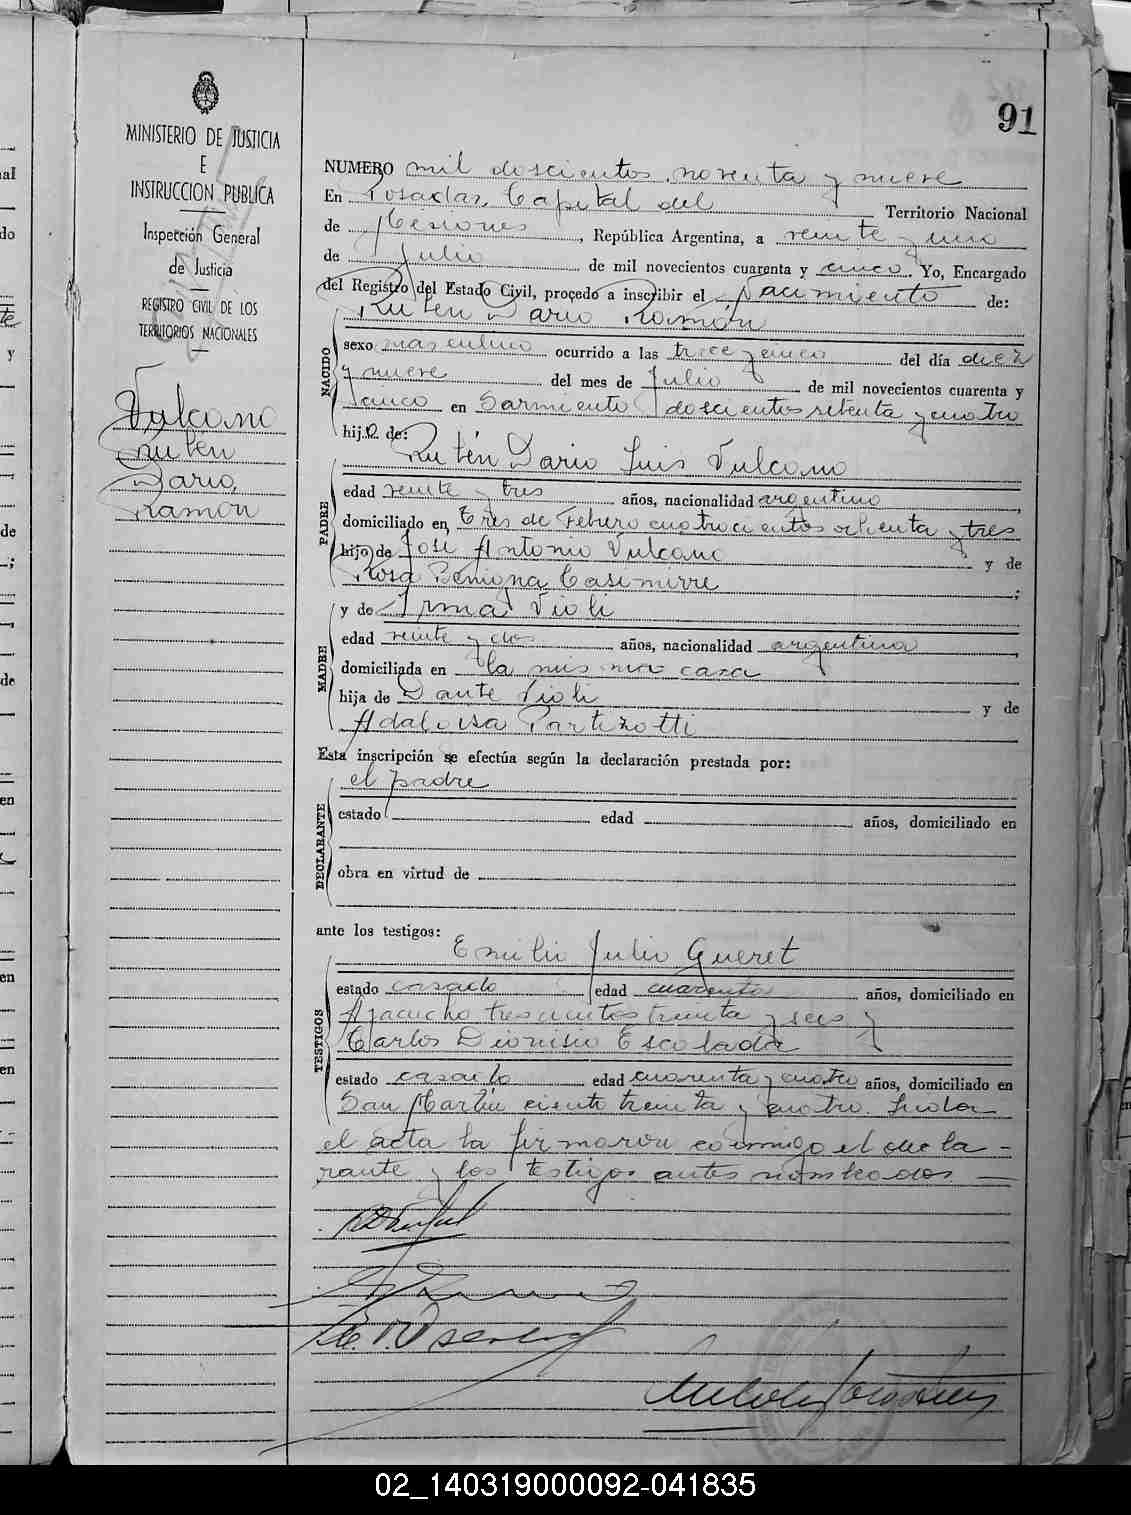 91
MINISTERIO DE JUSTICIA
E
INSTRUCCION PUBLICA
Inspección General
de Justicia
REGISTRO CIVIL DE LOS
TERRITORIOS NACIONALES
Vulcano
Rubén
Dario,
Ramón
NUMERO mil doscientos noventa y nueve
En Posadas, Capital del Territorio Nacional
de Misiones, República Argentina, a veinte y uno
de Julio de mil novecientos cuarenta y cinco. Yo, Encargado
del Registro del Estado Civil, procedo a inscribir el nacimiento de:
Rubén Dario Ramón
NACIDO
sexo masculino ocurrido a las trece y cinco del día diez
y nueve del mes de Julio de mil novecientos cuarenta y
cinco en Sarmiento doscientos setenta y cuatro
hijo de:
Rubén Dario Luis Vulcano
PADRE
edad veinte y tres años, nacionalidad argentino,
domiciliado en Tres de Febrero cuatrocientos ochenta y tres
hijo de José Antonio Vulcano y de
Rosa Benigna Casimirre;
y de Irma Violi
MADRE
edad veinte y dos años, nacionalidad argentina,
domiciliada en la misma casa
hija de Dante Violi y de
Adaloisa Partizotti
Esta inscripción se efectúa según la declaración prestada por:
el padre
DECLARANTE
estado edad años, domiciliado en
obra en virtud de
ante los testigos:
Emilio Julio Gueret
TESTIGOS
estado casado edad cuarenta años, domiciliado en
Ayacucho trescientos treinta y seis y
Carlos Dionisio Escobada
estado casado edad cuarenta y cuatro años, domiciliado en
San Martín ciento treinta y cuatro. Leida
el acta la firmaron conmigo el decla-
rante y los testigos antes nombrados
02_140319000092-041835